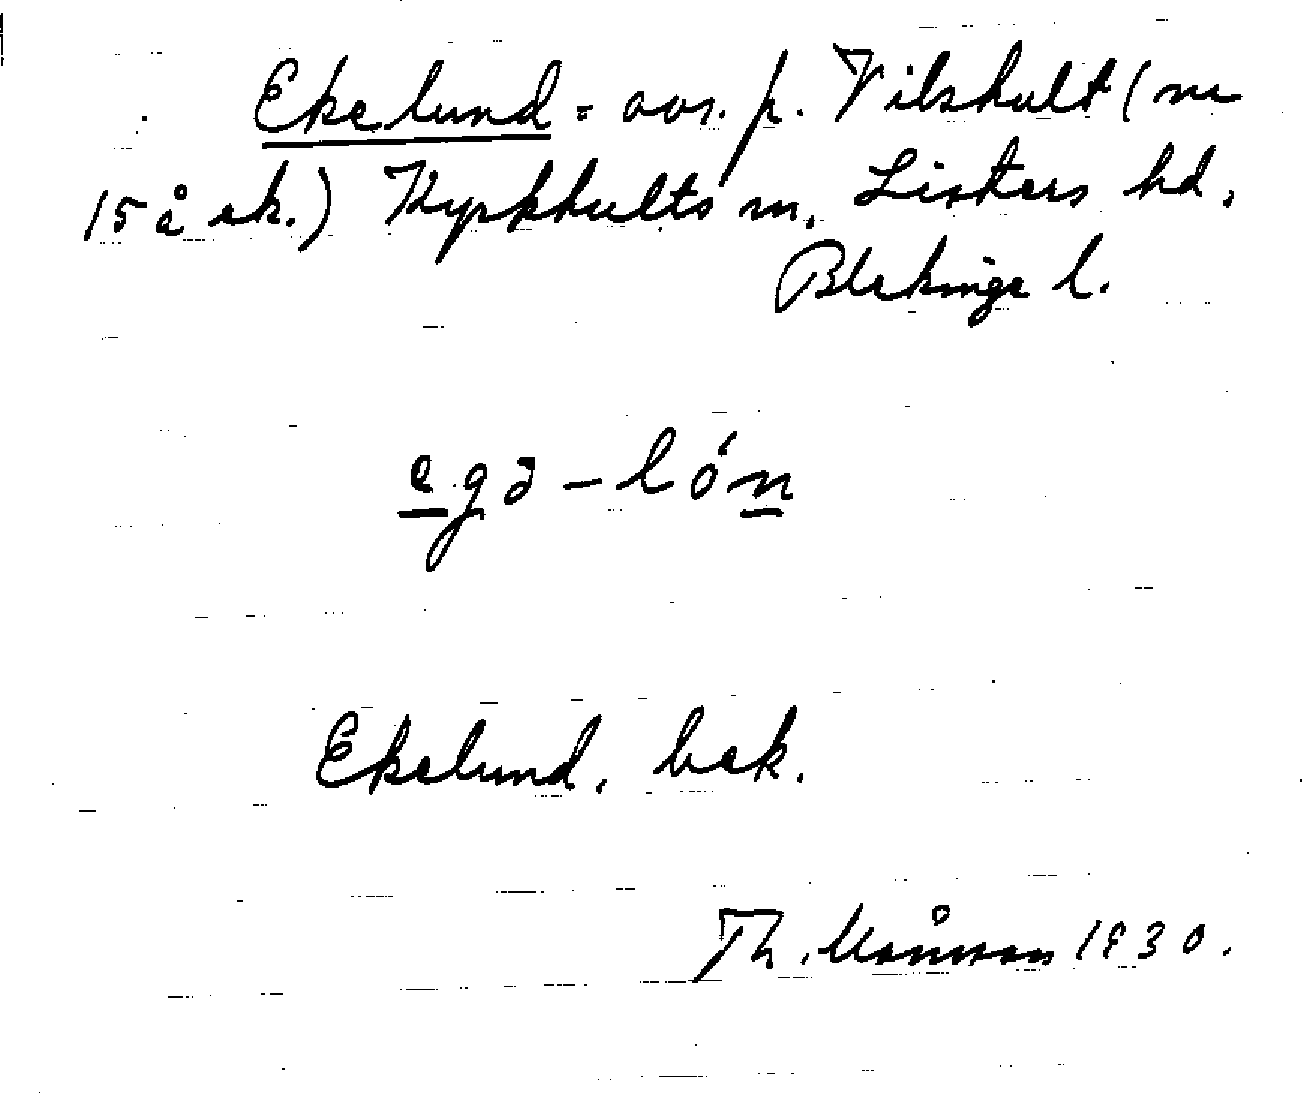 Ekelund = avs. p. Vilshult (nr
15 å ek.) Kyrkhults sn, Listers hd,
Blekinge l.
egə-lón
Ekelund. bek.
Th. Månsson 1930.